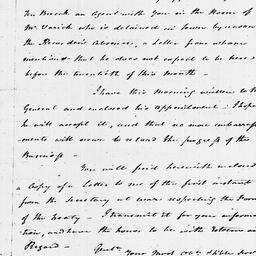 Ten Broeck an Agent with You in the Room of
Mr. Varick who is detained in Town by reason
the Recorders Absence, a letter from whom
mentioned that he does not expect to be here
before the twentieth of this Month—
I have this Morning written to the
General and enclosed his appointment— I hope
he will accept it, and that no more embarrass
ments will occur to retard the progress of the
Business—
You will find herewith enclosed
a Copy of a Letter to me of the first instant
from the Secretary at war respecting the Form
of the Treaty— I transmit it for your informa
tion, and have the honor to be with Esteem and
Regard— Gentn.
Your Most Obt. & Hble